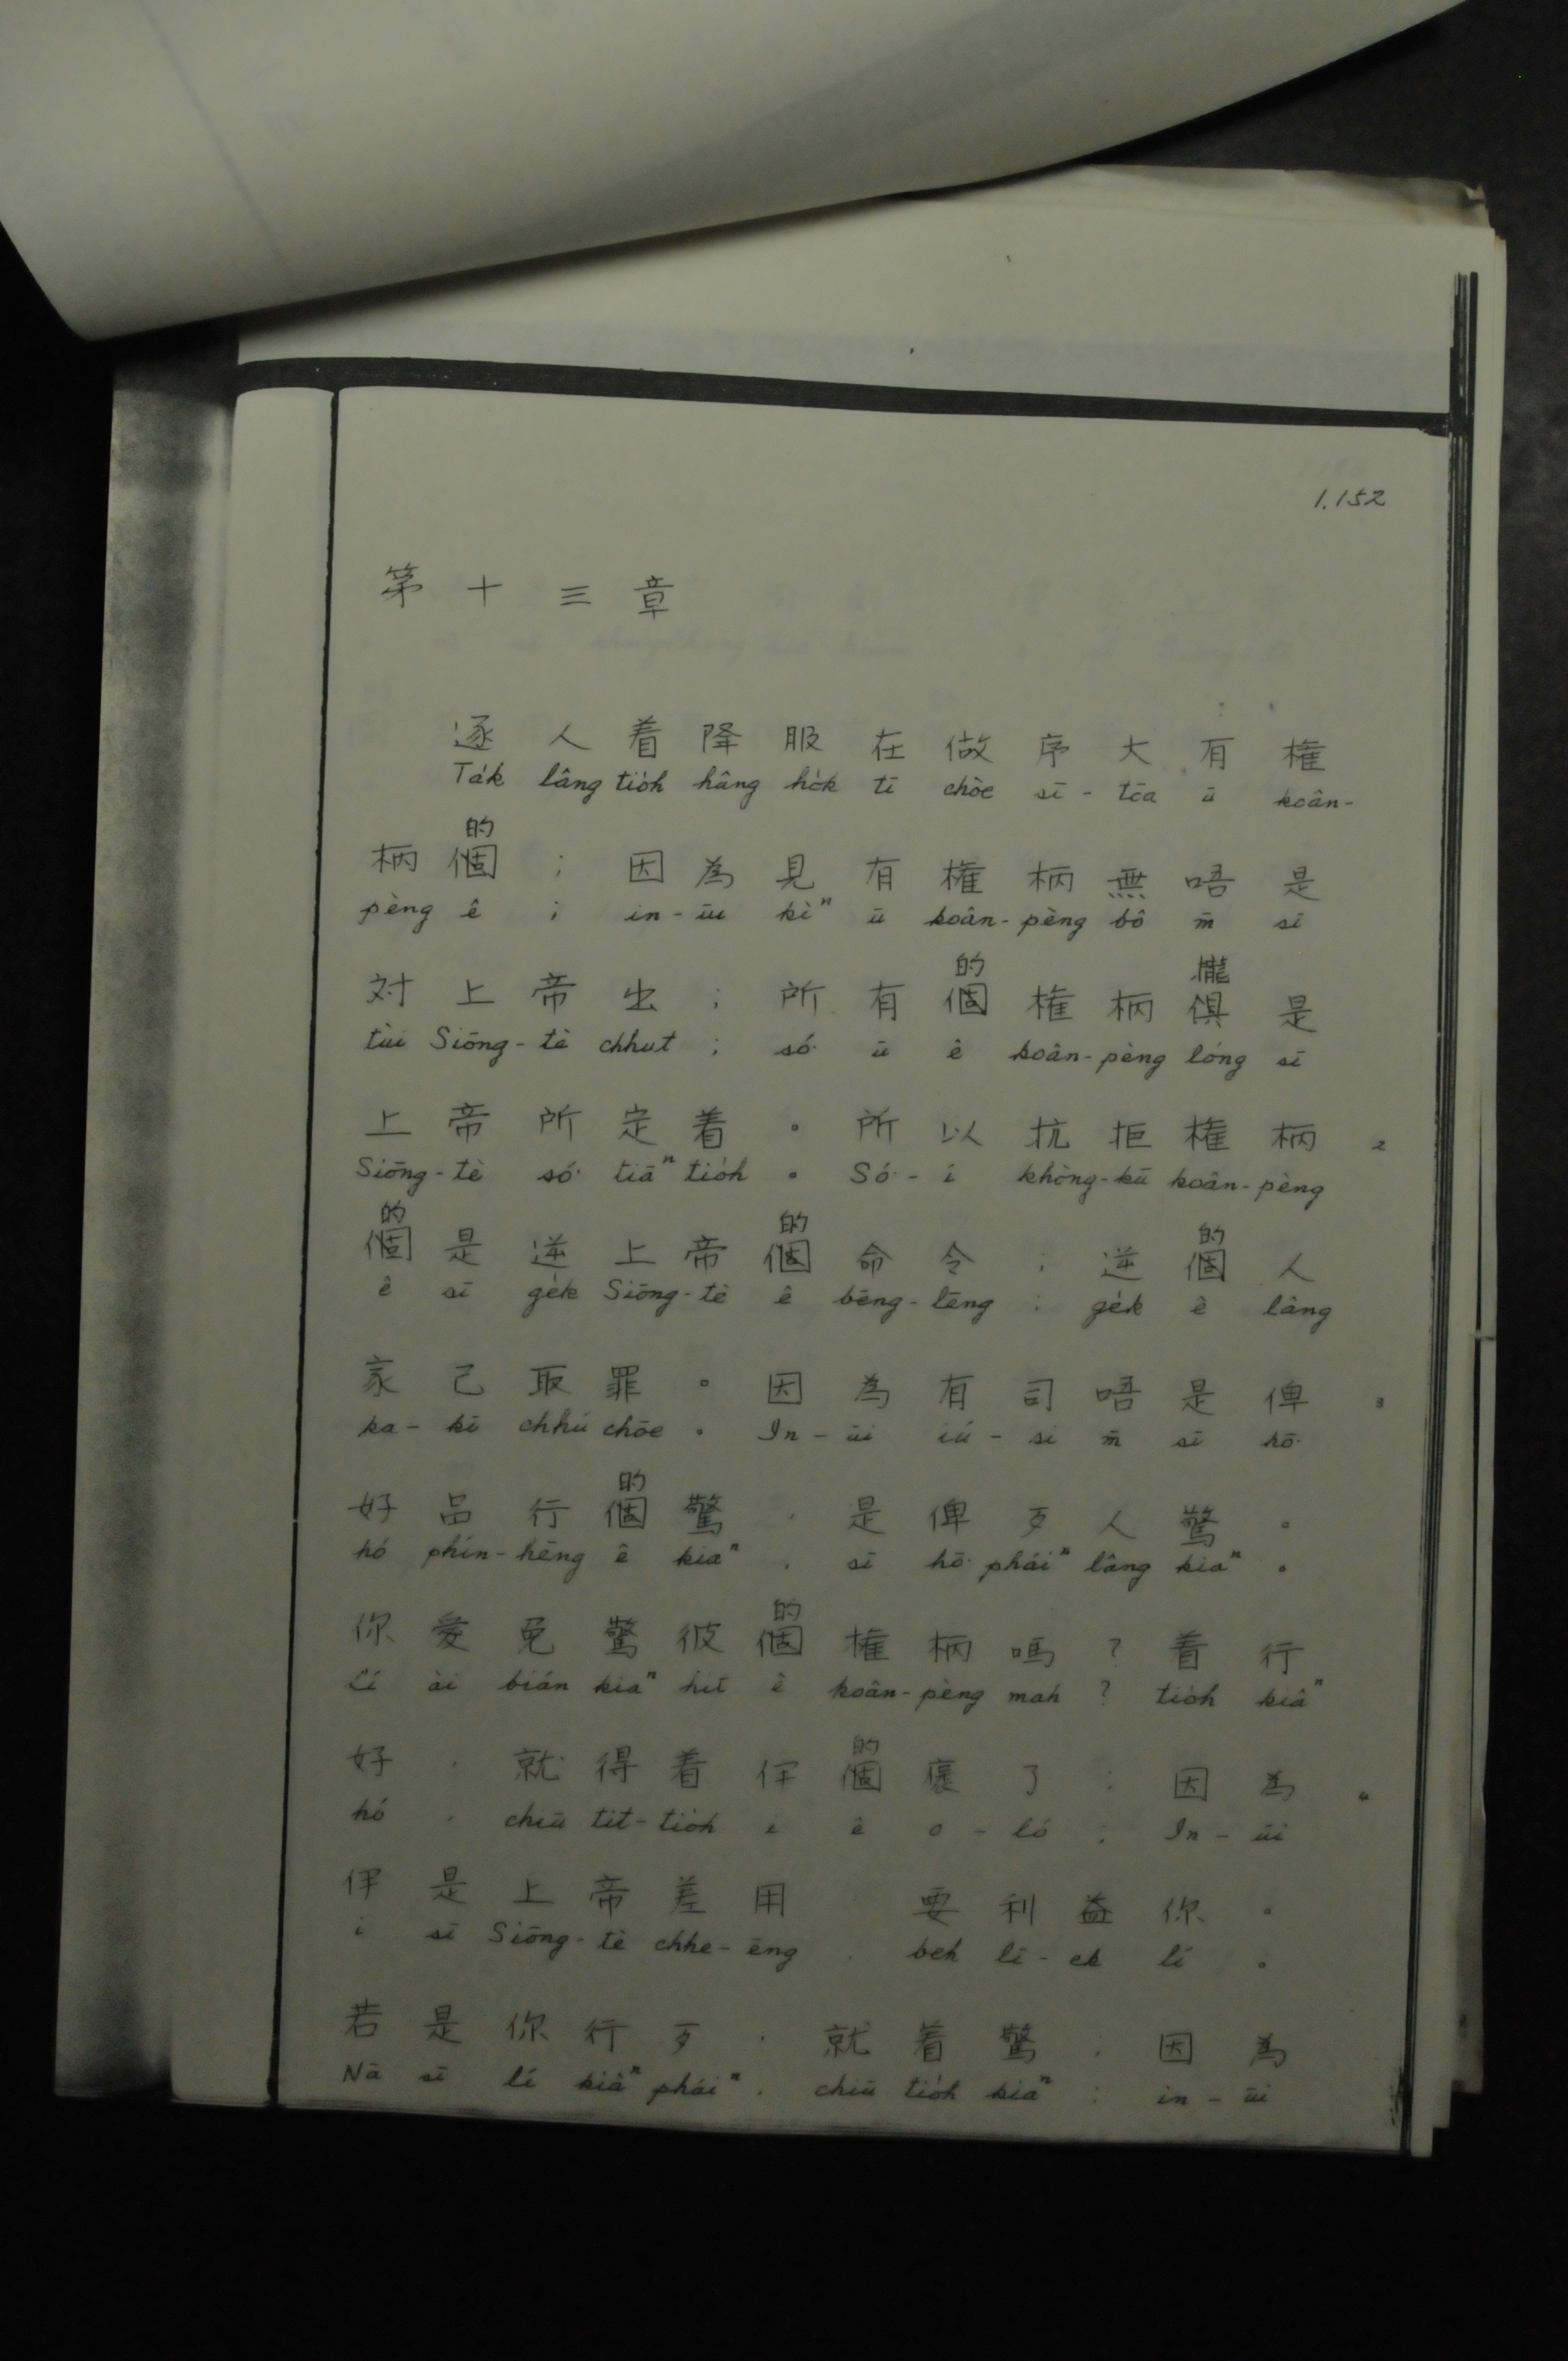 1.152
第十三章
逐人着降服在做序大有権
Ta̍k lâng tio̍h hâng ho̍k tī chòe sī-tōa ū koân-
的
柄個；因為見有権柄無唔是
pèng ê ; in-ūi kìⁿ ū koân-pèng bô m̄ sī
的 攏
対上帝出；所有個権柄俱是
tùi Siōng-tè chhut ; só͘ ū ê koân-pèng lóng sī
上帝所定着。所以抗拒権柄 2
Siōng-tè só͘ tiāⁿ tio̍h 。 Só͘-í khòng-kū koân-pèng
的 的 的
個是逆上帝個命令；逆個人
ê sī ge̍k Siōng-tè ê bēng-lēng ; ge̍k ê lâng
家己取罪。因為有司唔是俾 3
ka-kī chhú chōe 。 In-ūi iú-si m̄ sī hō͘
的
好品行個驚，是俾歹人驚。
hó phín-hēng ê kiaⁿ , sī hō͘ pháiⁿ lâng kiaⁿ 。
的
你愛免驚彼個権柄嗎？着行
Lí ài bián kiaⁿ hit ê koân-pèng mah ? tio̍h kiâⁿ
的
好，就得着伊個褒了；因為 4
hó , chiū tit-tio̍h i ê o-ló ; In-ūi
伊是上帝差用 要利益你。
i sī Siōng-tè chhe-ēng . beh lī-ek lí 。
若是你行歹，就着驚；因為
Nā sī lí kiâⁿ pháiⁿ , chiū tio̍h kiaⁿ : in-ūi